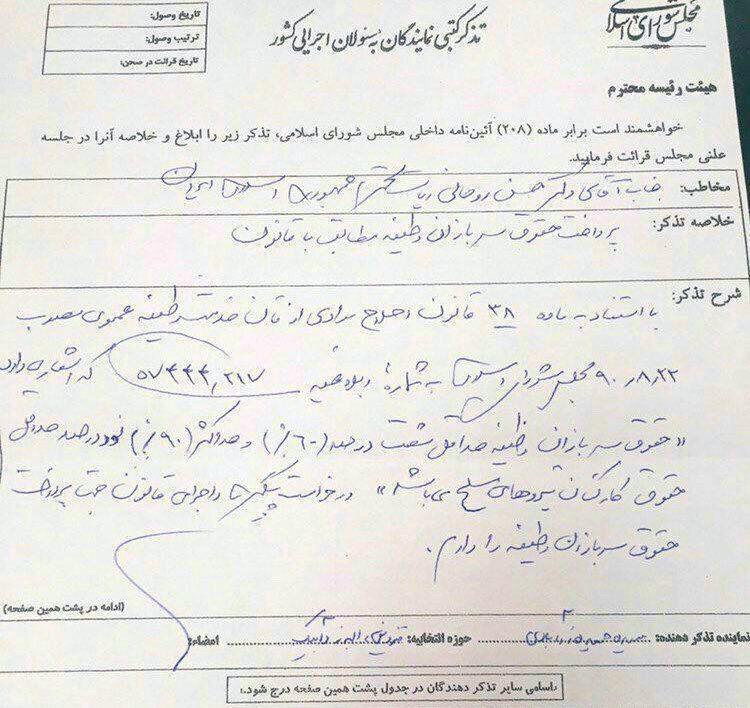 مجلس شورای اسلامی
تذکر کتبی نمایندگان به مسئولان اجرایی کشور
تاریخ وصول:
ترتیب وصول:
تاریخ قرائت در صحن:
هیئت رئیسه محترم
خواهشمند است برابر ماده (۲۰۸) آئین‌نامه داخلی مجلس شورای اسلامی، تذکر زیر را ابلاغ و خلاصه آنرا در جلسه
علنی مجلس قرائت فرمایید.
مخاطب: جناب آقای دکتر حسن روحانی ریاست محترم جمهوری اسلامی ایران
خلاصه تذکر: پرداخت حقوق سربازان وظیفه مطابق با قانون
شرح تذکر: با استناد به ماده ۳۸ قانون اصلاح موادی از قانون خدمت وظیفه عمومی مصوب
۹۰٫۸٫۲۲ مجلس شورای اسلامی به شماره ابلاغیه که اشعار می دارد
«حقوق سربازان وظیفه حداقل شصت درصد (۶۰٪) و حداکثر (۹۰٪) نود درصد حداقل
حقوق کارکنان نیروهای مسلح می باشد» درخواست پیگیری و اجرای قانون جهت پرداخت
حقوق سربازان وظیفه را دارم.
(ادامه در پشت همین صفحه)
نماینده تذکر دهنده: حوزه انتخابیه: قزوین، البرز و آبیک امضاء:
اسامی سایر تذکر دهندگان در جدول پشت همین صفحه درج شود.